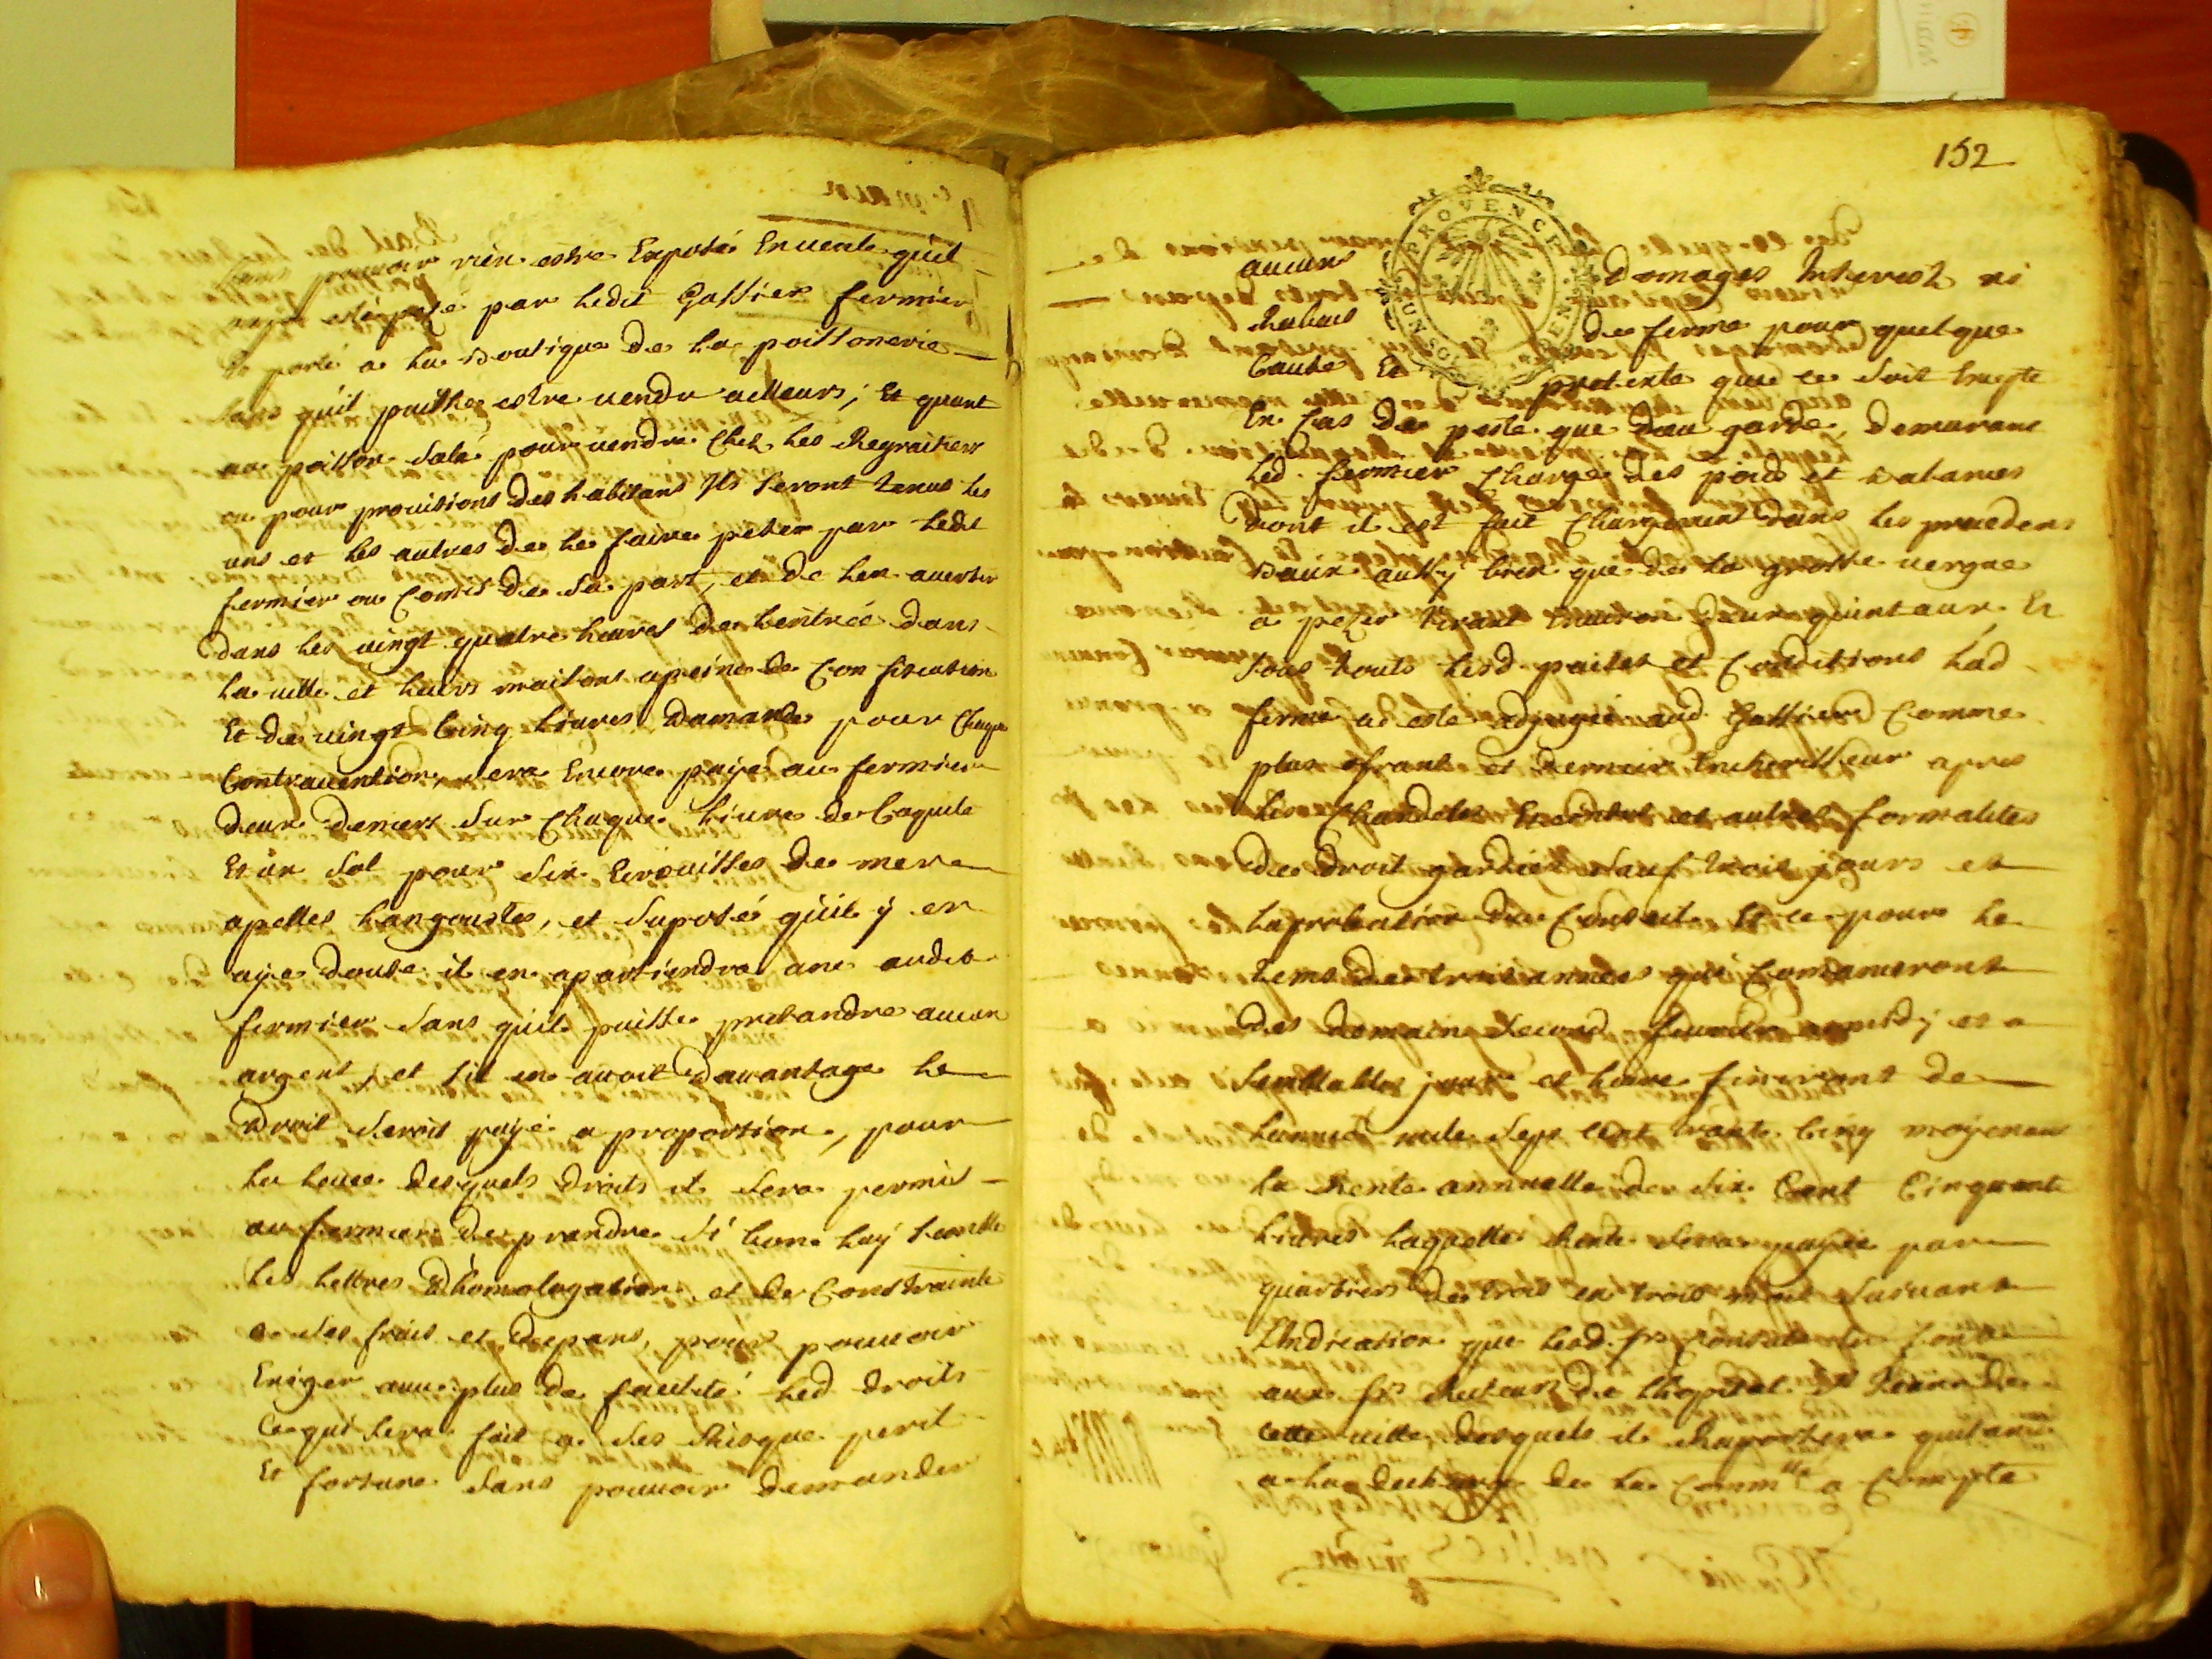 sans pouvoir rien estre Exposé En uente quil
naye esté pezé par ledit Gassier fermier
Et porté a la Boutique de la poissonerie
sans quil puisse estre uendu ailleurs; Et quant
au poisson salé pour uendre chez les Regratiers
ou pour prouisions des habitans Ils seront tenus les
uns et les autres de le faire pezer par ledit
fermier ou Comis de sa part, et de len auertir
dans les uingt quatre heures de lentrée dans
la uille et leurs maisons a peine de Confiscation
Et de uingt Cinq liures Damande pour Chaque
Contrauention, sera Encore payé au fermier
deux deniers sur Chaque liure de Coquile
Et un sol pour six Ecrouisses de mer
apelles Langoustes, et suposé quil y en
aye douse il en apartiendra une audit
fermier sans quil puisse pretandre aucun
argent, et sil en auoit dauantage le
Droit seroit payé a proportion, pour
la leuee desquels droits il sera permis
au fermier de prendre si bon luy semble
les lettres dhomologation et de Constrainte
a ses frais et depans, pour pouuoir
Exiger auec plus de facilité led droits
Ce qui sera fait a ses Risque peril
Et fortune sans pouuoir demander
152
PROVENCE
UN SOL
aucuns domages Interest ni
Rabais de ferme pour quelque
Cause Et pretexte que ce soit Excepté
En Cas de peste que dieu garde, demurant
led. fermier Chargé des poids et Balances
dont il est fait Chargement dans les precedens
Baux aussy bien que de la grosse uergue
a pezer tirant Enuiron deux quintaux, Et
sous touts lesd. paites et Conditions lad
ferme a esté adjugée aud Gassier Comme
plus ofrant et dernier Encherisseur apres
les Chandeles Eteintes et autres formalites
de droit gardées sauf trois jours et
laprobation du Conseil Et ce pour le
tems de trois années qui Comanceront
des demain second feurier a midy et a
semblables jour et heure finiront de
lannée mile sept cent trante Cinq moyenant
la Rente annuelle de six Cent Cinquante
liures laquelle Rente sera payée par
quartiers de trois en trois mois suiuant
LIndication que lesd. srs Consuls en font
aux srs Recteurs de lhopital St de
cette uille, desquels il Raportera quitance
a la decharge de la Commté a Compte